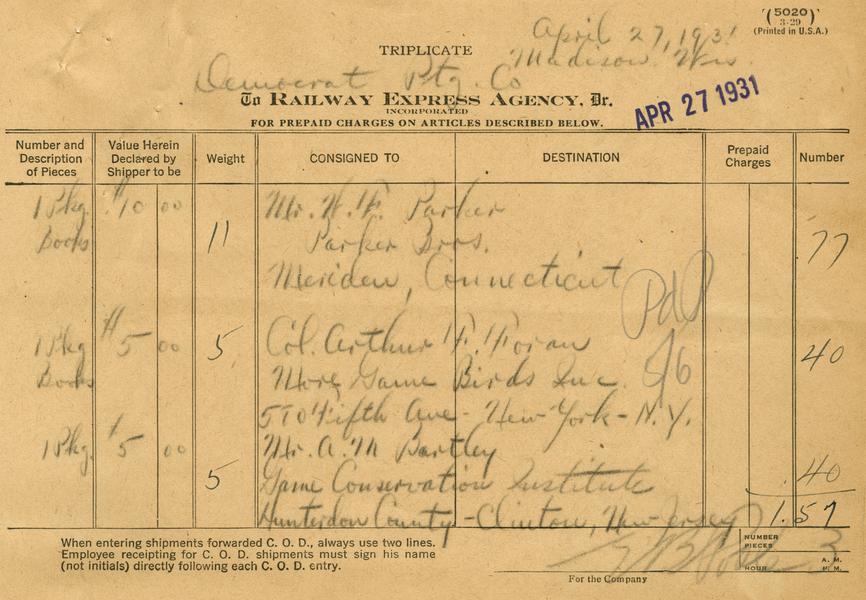 (5020)
3-29
(Printed in U.S.A.)
April 27, 1931
TRIPLICATE
Madison, Wis.
Democrat Ptg. Co
To RAILWAY EXPRESS AGENCY, Dr.
INCORPORATED
APR 27 1931
FOR PREPAID CHARGES ON ARTICLES DESCRIBED BELOW.
Number and Description of Pieces Value Herein Declared by Shipper to be Weight CONSIGNED TO DESTINATION Prepaid Charges Number
1 Pkg. $10 00 Mr. W. F. Parker
Books 11 Parker Bros. 77
Meriden, Connecticut
Pd
1 Pkg $5 00 5 Col. Arthur F. Foran 40
Books More Game Birds Inc. 5/6
570 Fifth Ave - New York - N.Y.
1 Pkg. $5 00 Mr. A. M Bartley
5 Game Conservation Institute .40
Hunterdon County - Clinton, New Jersey 1.57
When entering shipments forwarded C. O. D., always use two lines.
Employee receipting for C. O. D. shipments must sign his name
(not initials) directly following each C. O. D. entry.
NUMBER PIECES 3
HOUR A. M. P. M.
For the Company